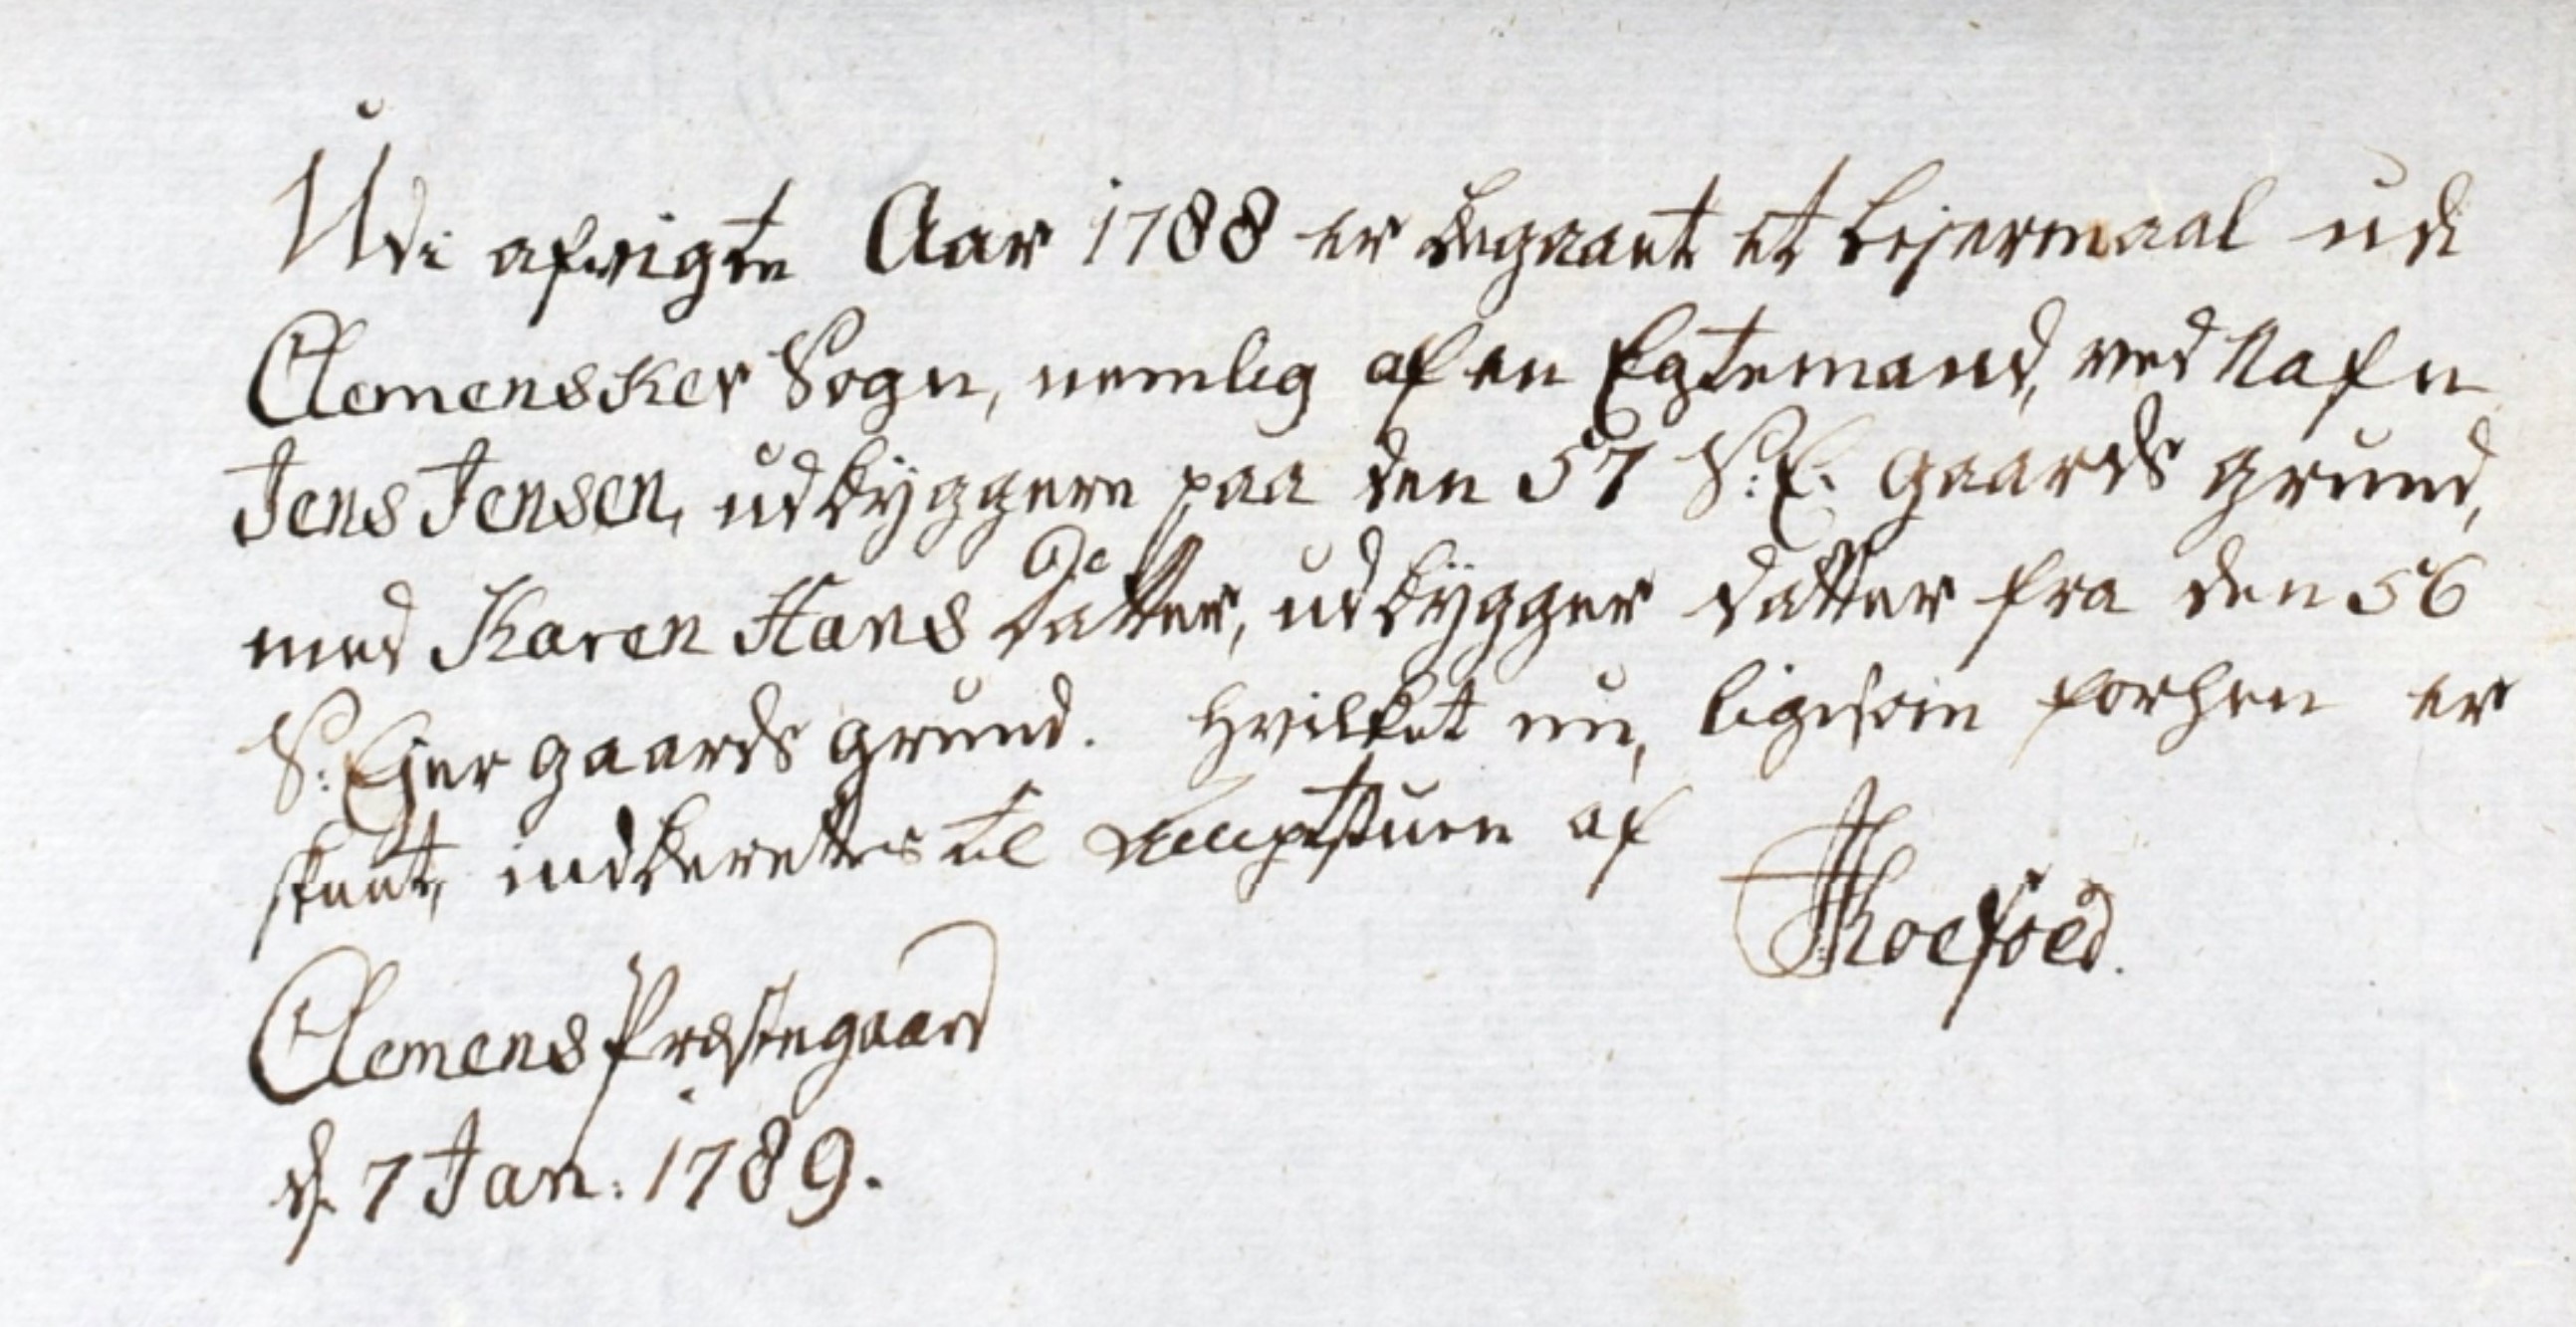 Udi afvigte Aar 1788 er begaaet et Lejermaal udi
Clemensker Sogn, nemlig af en Egtemand, ved Nafn
Jens Jensen, udbÿggere paa den 57 S: E. gaards grund,
med Karen Hans Datter, udbÿgger datter fra den 56
S: Ejer gaards grund. Hvilket nu, ligesom forhen er
skeet, indberettes til Amptstuen af
JKoefoed.
Clemens Præstegaard
d. 7 Jan: 1789.